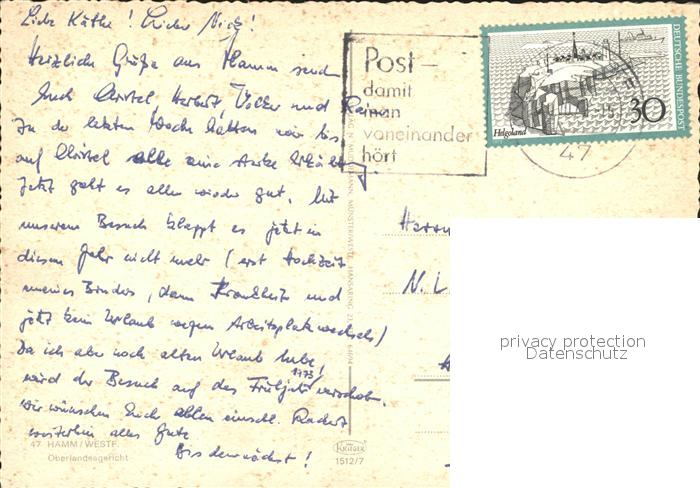 Liebe Käthe! Lieber Nick!
Herzliche Grüße aus Hamm senden
Euch Christel, Herbert, Volker und Rainer
In der letzten Woche hatten wir bis
auf Christel alle eine starke Erkältung
Jetzt geht es allen wieder gut. Mit
unserem Besuch klappt es jetzt in
diesem Jahr nicht mehr (erst Hochzeit
meines Bruders, dann Krankheit und
jetzt kein Urlaub wegen Arbeitsplatzwechsels)
Da ich aber noch alten Urlaub habe!
wird der Besuch auf das Frühjahr 1973! verschoben.
Wir wünschen Euch allen einschl.
weiterhin alles Gute
Bis demnächst!
47 HAMM/WESTF.
Oberlandesgericht
Post-
damit
man
voneinander
hört
DEUTSCHE BUNDESPOST
Helgoland
30
47
MÜNSTER/WESTF. HANSARING
Krüger
1512/7
N. L
privacy protection
Datenschutz